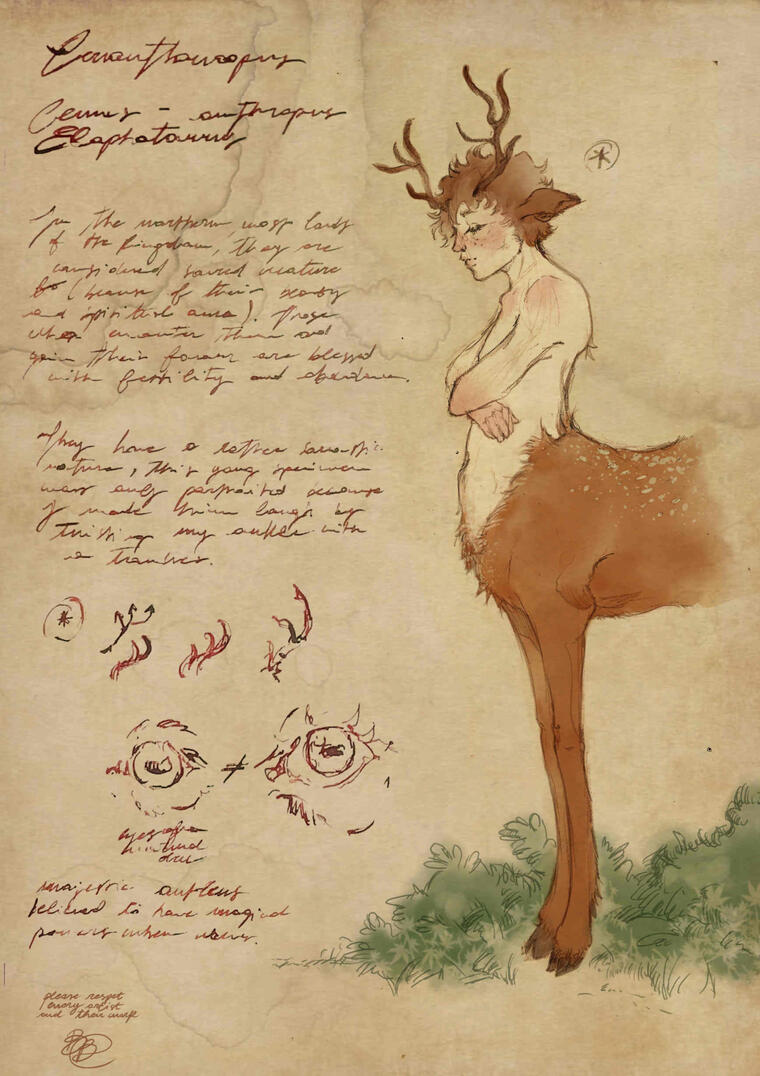 Cervanthropus
Cervus - anthropus
Elaphotaurus
In the northern most lands
of the Kingdom, they are
considered sacred creature
(because of their beauty
and spiritual aura). Those
who encounter them and
gain their favour are blessed
with fertility and abundance.
They have a rather
nature, this young specimen
was only portraited because
I made him laugh by
twisting my ankle with
a
*
≠
eyes of a
hunted
majestic antlers
believed to have magical
powers when
please respet
every artist
and their work